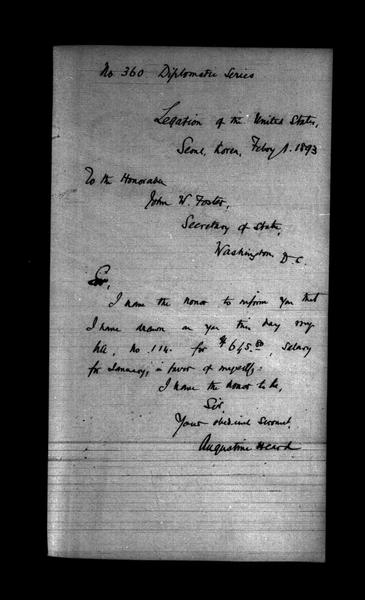 No 360 Diplomatic Series
Legation of the United States,
Seoul, Korea, Feby 1. 1893
To the Honorable
John W. Foster,
Secretary of State,
Washington D. C.
Sir,
I have the honor to inform you that
I have drawn on you this day my
No. 114. for $645.80, Salary
for January, in favor of myself;
I have the honor to be,
Sir,
Your obedient Servant,
Augustine Heard